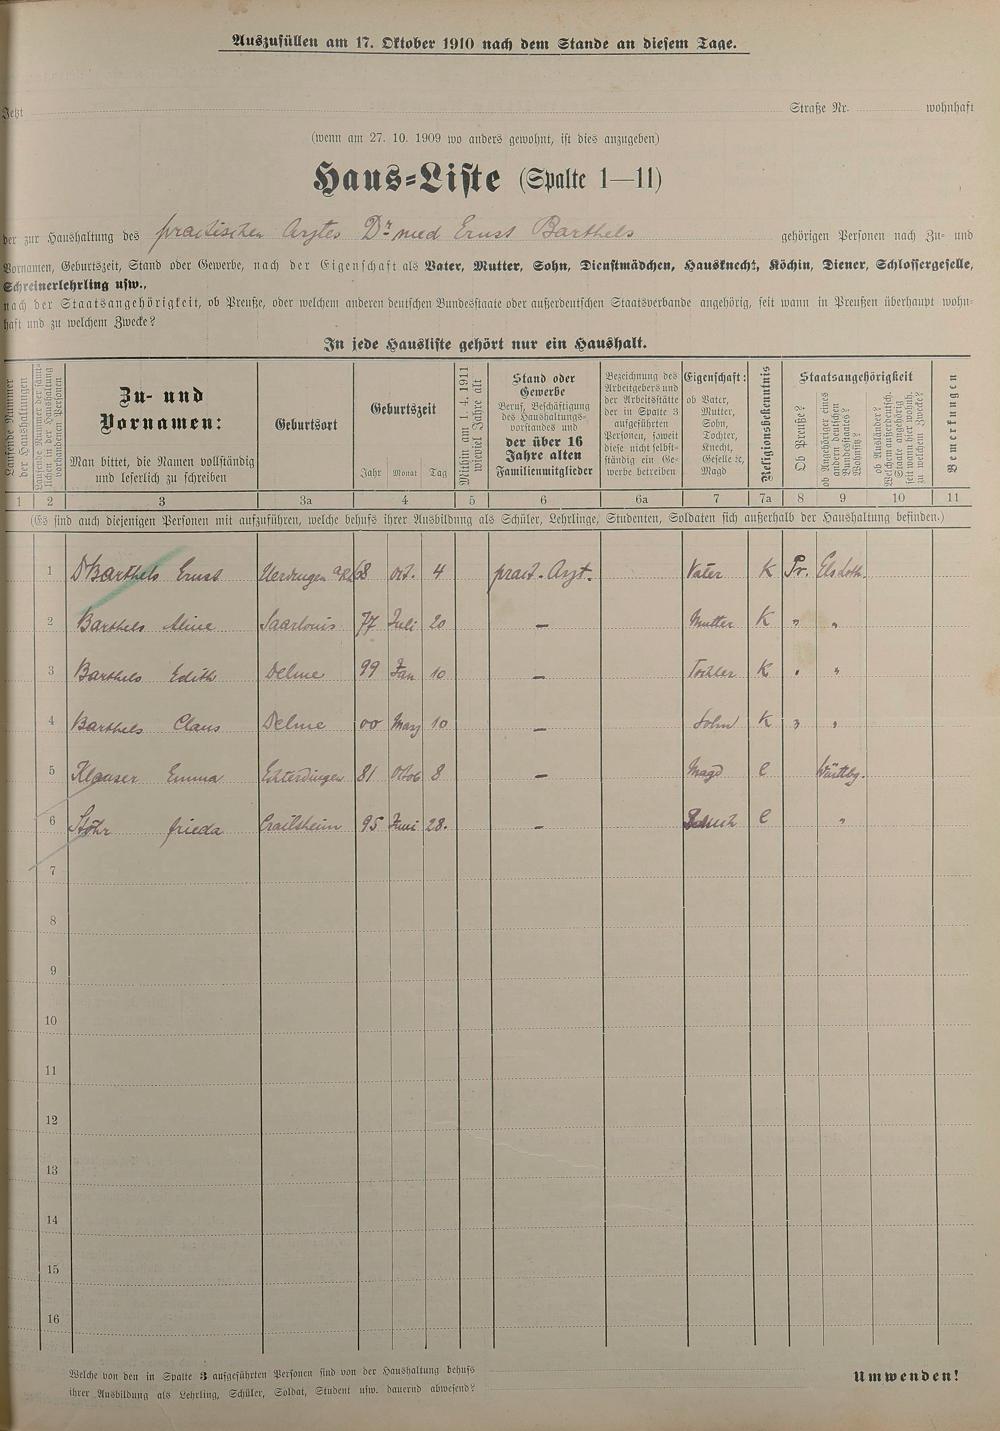 Auszufüllen am 17. Oktober 1910 nach dem Stande an diesem Tage.
Jetzt Straße Nr. wohnhaft
(wenn am 27. 10. 1909 wo anders gewohnt, ist dies anzugeben)
Haus-Liste (Spalte 1—11)
der zur Haushaltung des practischen Arztes Dr. med Ernst Barthels gehörigen Personen nach Zu- und
Vornamen, Geburtszeit, Stand oder Gewerbe, nach der Eigenschaft als Vater, Mutter, Sohn, Dienstmädchen, Hausknecht, Köchin, Diener, Schlossergeselle,
Schreinerlehrling usw.,
nach der Staatsangehörigkeit, ob Preuße, oder welchem anderen deutschen Bundesstaate oder außerdeutschen Staatsverbande angehörig, seit wann in Preußen überhaupt wohn-
haft und zu welchem Zwecke?
In jede Hausliste gehört nur ein Haushalt.
Laufende Nummer
der Haushaltungen
Laufende Nummer der sämt-
lichen in der Haushaltung
vorhandenen Personen
Zu- und
Vornamen:
Man bittet, die Namen vollständig
und leserlich zu schreiben
Geburtsort
Geburtszeit
Jahr Monat Tag
Mithin am 1. 4. 1911
wieviel Jahre alt
Stand oder
Gewerbe
Beruf, Beschäftigung
des Haushaltungs-
vorstandes und
der über 16
Jahre alten
Familienmitglieder
Bezeichnung des
Arbeitgebers und
der Arbeitsstätte
der in Spalte 3
aufgeführten
Personen, soweit
diese nicht selbst-
ständig ein Ge-
werbe betreiben
Eigenschaft:
ob Vater,
Mutter,
Sohn,
Tochter,
Knecht,
Geselle ꝛc,
Magd
Religionsbekenntnis
Staatsangehörigkeit
Ob Preuße?
ob Angehöriger eines
andern deutschen
Bundesstaates?
Wohnsitz?
ob Ausländer?
Welchem außerdeutsch.
Staate angehörig
seit wann hier wohnh.
zu welchem Zwecke?
Bemerkungen
1 2 3 3a 4 5 6 6a 7 7a 8 9 10 11
(Es sind auch diejenigen Personen mit aufzuführen, welche behufs ihrer Ausbildung als Schüler, Lehrlinge, Studenten, Soldaten sich außerhalb der Haushaltung befinden.)
1 Dr Barthels Ernst Uerdingen a/Rh 68 Oct. 4 pract. Arzt. Vater K Pr. Els Loth.
2 Barthels Aline Saarlouis 77 Juli 20 — Mutter K " "
3 Barthels Edith Delme 99 Jan 10 — Tochter K " "
4 Barthels Claus Delme 00 März 10 — Sohn K " "
5 Klauser Emma Echterdingen 81 Otob 8 — Magd e Württbg.
6 Stöhr frieda Crailsheim 95 Juni 28. — e "
7
8
9
10
11
12
13
14
15
16
Welche von den in Spalte 3 aufgeführten Personen sind von der Haushaltung behufs
ihrer Ausbildung als Lehrling, Schüler, Soldat, Student usw. dauernd abwesend?
Umwenden!